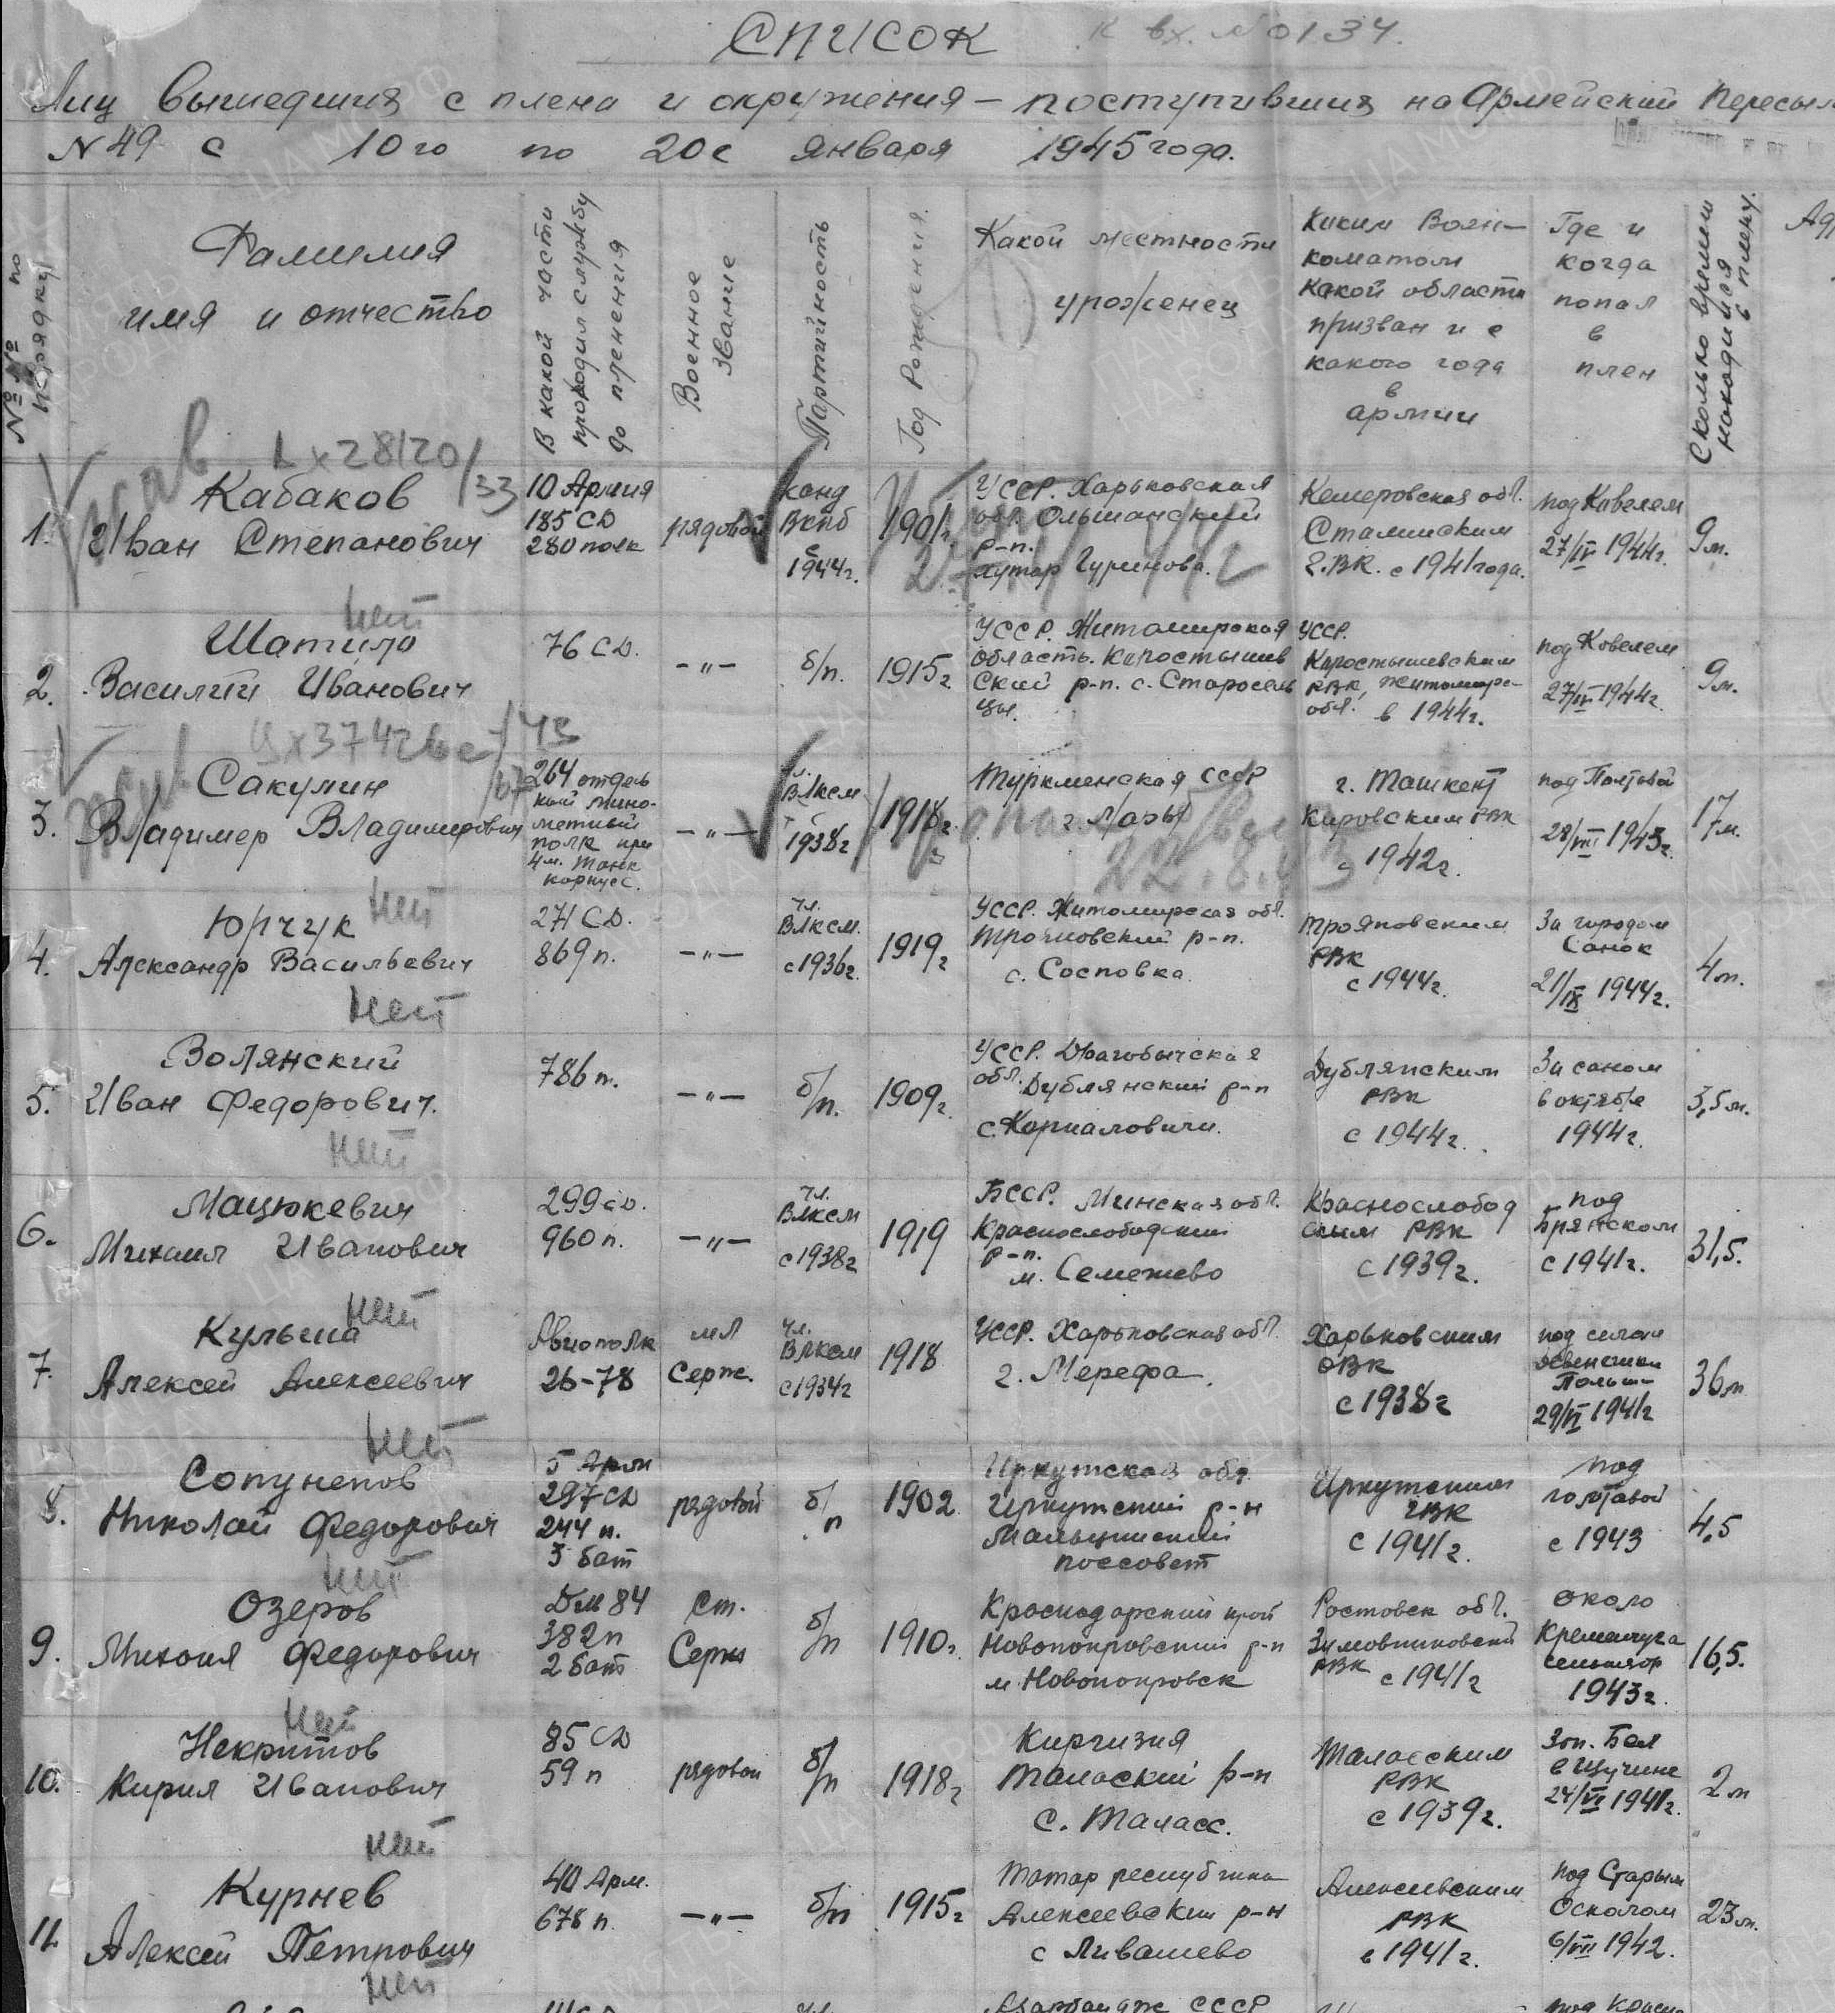 СПИСОК
К вх. № 0134.
Лиц вышедших с плена и окружения — поступивших на Армейский Пересыл
N 49 с 10 го по 20 е января 1945 года.
№ № по порядку
Фамилия
имя и отчество
В какой части
проходил службу
до пленения
Военное
звание
Партийность
Год Рождения.
Какой местности
уроженец
Каким Воен-
коматом
какой области
призван и с
какого года
в
армии
Где и
когда
попал
в
плен
Сколько времени
находился
в плену.
Ад
1.
Кабаков
Иван Степанович
10 Армия
185 СД
280 полк
рядовой
Канд
ВКПб
с
1944г.
1901г.
УССР. Харьковская
обл. Ольшанский
р-н.
хутор Гуринова.
Кемеровская обл.
Сталинским
Г.ВК. с 1941 года.
под Ковелем
27/IV 1944г.
9м.
нет
2.
Шатило
Василий Иванович
76 СД.
—"—
б/п.
1915г
УССР. Житомирская
область. Коростышев
ский р-н. с. Старосель
цы.
УССР.
Коростышевским
РВК, Житомирс-
обл. в 1944г.
под Ковелем
27/IV 1944г.
9м.
3.
Сакулин
Владимер Владимирович
264 отдель
ный мино-
метный
полк при
4м. танк
корпусе.
—"—
чл.
ВЛКСМ
с
1938г
1918г.
Туркменская ССР
г. Мары
22.8.43
г. Ташкент
Кировским РВК
с 1942г.
под Полтавой
28/VIII 1943г.
17м.
нет
4.
Юрчук
Александр Васильевич
271 СД.
869 п.
—"—
чл.
ВЛКСМ.
с 1936г.
1919г
УССР. Житомирская обл.
Трояновский р-н.
с. Сосновка.
Трояновским
РВК
с 1944г.
За городом
Санок
21/IX 1944г.
4м.
нет
5.
Волянский
Иван Федорович.
786 п.
—"—
б/п.
1909г.
УССР. Драгобычская
обл. Дублянский р-н
с.
Дублянским
РВК
с 1944г.
За саном
в октябре
1944г.
3,5м.
нет
6.
Мацюкевич
Михаил Иванович
299 сд.
960 п.
—"—
чл.
ВЛКСМ
с 1938г
1919
БССР. Минская обл.
Краснослободский
р-н.
м. Семежево
Краснослобод
ским РВК
с 1939г.
под
Брянском
с 1941г.
31,5.
нет
7.
Кульша
Алексей Алексеевич
Авиополк
26-78
мл
Серж.
чл.
ВЛКСМ
с 1934г
1918
УССР. Харьковская обл.
г. Мерефа.
Харьковским
ОВК
с 1938г
под селом
Польши
29/VI 1941г
36м
нет
8.
Сопунепов
Николай Федорович
5 Арм
297 СД
244 п.
3 бат
рядовой
б/п
1902.
Иркутская обл.
Иркутский р-н
поссовет
Иркутским
ГВК
с 1941г.
под
Полтавой
с 1943
4,5
нет
9.
Озеров
Михаил Федорович
Див 84
382 п
2 бат
Ст.
Серж
б/п
1910г.
Краснодарский край
Новопокровский р-н
м Новопокровск
Ростовск обл.
Зимовниковский
РВК с 1941г
около
Кременчуга
сентябр
1943г.
16,5.
нет
10.
Некритов
Кирил Иванович
85 СД
59 п
рядовой
б/п
1918г
Киргизия
Талаский р-н
с. Таласс.
Таласским
РВК
с 1939г.
Зап. Бел
в Щучине
24/VI 1941г.
2м
нет
11.
Курнев
Алексей Петрович
40 Арм.
678 п.
—"—
б/п
1915г
Татар республика
Алексеевский р-н
с Ливашево
Алексеевским
РВК
в 1941г.
под Старым
Осколом
6/VII 1942.
23м.
нет
Азербайдж ССР
под Красн